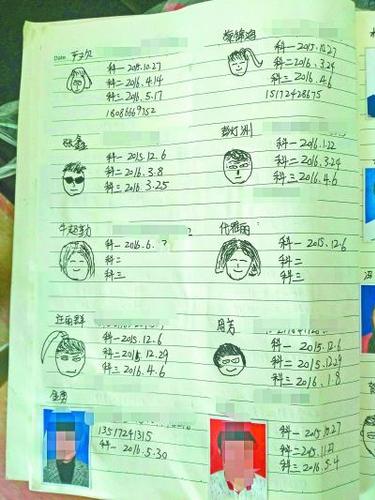 Date 于又欠
科一 2015.10.27
科二 2016.4.14
科三 2016.5.17
18086669352
科一 2015.10.27
科二 2016.3.24
科三 2016.4.6
15172428675
张鑫
科一 2015.12.6
科二 2016.3.8
科三 2016.3.25
彭灯洲
科一 2016.1.22
科二 2016.3.24
科三 2016.4.6
科一 2016.6.?
科二
科三
代雅雨
科一 2015.12.6
科二
科三
汪雨群
科一 2015.12.6
科二 2015.12.29
科三 2016.4.6
周芳
科一 2015.12.6
科二 2015.12.29
科三 2016.1.8
13517241315
科一 2016.5.30
科一 2015.10.27
科三 2016.5.4